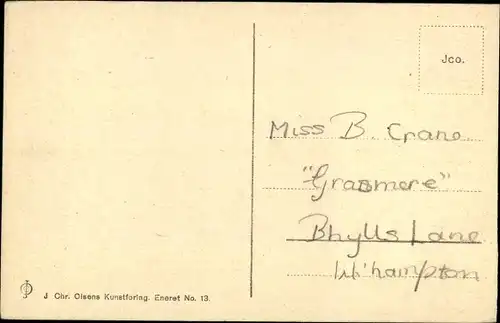 Jco.
Miss B. Crane
"Grasmere"
Bhylls Lane
W'hampton
J Chr. Olsens Kunstforlag. Eneret No. 13.